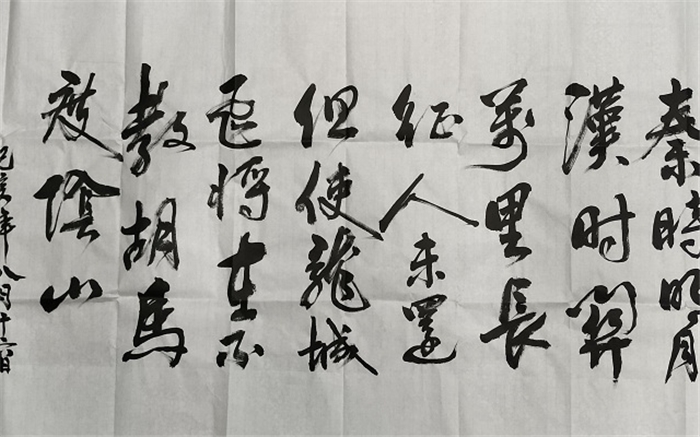 秦時明月
漢时關
萬里長
征人未還
但使龍城
飛將在不
教胡馬
度陰山
己亥年八月十六日